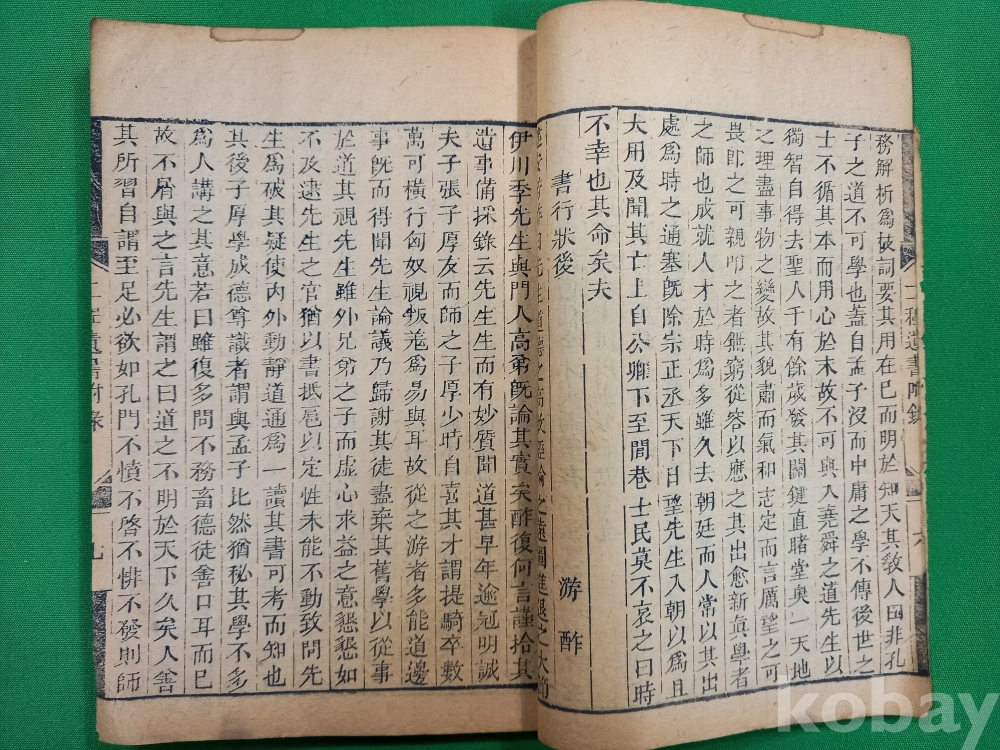 務解析爲故詞要其用在已而明於知天其敎人曰非孔
子之道不可學也蓋自孟子沒而中庸之學不傳後世之
士不循其本而用心於末故不可與入堯舜之道先生以
獨智自得去聖人千有餘歲發其關鍵直睹堂奧一天地
之理盡事物之變故其貌肅而氣和志定而言厲望之可
畏卽之可親叩之者無窮從容以應之其出愈新眞學者
之師也成就人才於時爲多雖久去朝廷而人常以其出
處爲時之通塞旣除宗正丞天下日望先生入朝以爲且
大用及聞其亡上自公卿下至閭巷士民莫不哀之曰時
不幸也其命矣夫
書行狀後
游酢
道德之高致經綸之遠圖進退之大節
伊川季先生與門人高弟旣論其實矣酢復何言謹拾其
遺事備採錄云先生生而有妙質聞道甚早年逾冠明誠
夫子張子厚友而師之子厚少時自喜其才謂提騎卒數
萬可橫行匈奴視叛羌爲易與耳故從之游者多能道邊
事旣而得聞先生論議乃歸謝其徒盡棄其舊學以從事
於道其視先生雖外兄弟之子而虛心求益之意懇懇如
不及逮先生之官猶以書抵扈以定性未能不動致問先
生爲破其疑使內外動靜道通爲一讀其書可考而知也
其後子厚學成德尊識者謂與孟子比然猶秘其學不多
爲人講之其意若曰雖復多問不務畜德徒舍口耳而已
故不屑與之言先生謂之曰道之不明於天下久矣人舍
其所習自謂至足必欲如孔門不憤不啓不悱不發則師
二程遺書附錄
六
二程遺書附錄
七
kobay